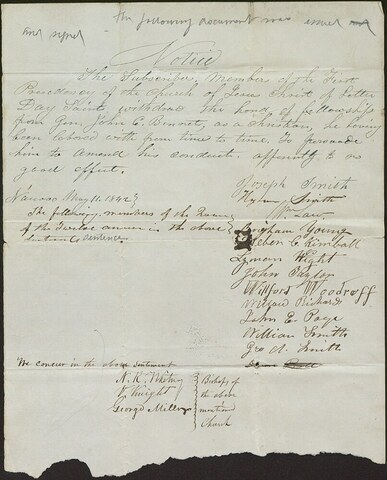 the following document was issued and
and signed
Notice
The Subscribers, Members of the First
Presidency of the Church of Jesus Christ of Latter
Day Saints withdraw the hand of fellowship
from Gen. John C. Bennett, as a christian, he having
been labored with from time to time, to persuade
him to amend his conduct, apparently to no
good effect.
Joseph Smith
Hyrum Smith
Wm Law
Nauvoo May 11. 1842
The following members of the Quorum
of the Twelve concur in the above
sentence
Brigham Young
Heber C Kimball
Lyman Wight
John Taylor
Wilford Woodruff
Willard Richards
John E. Page
William Smith
Geo A. Smith
We concur in the above sentiment
N. K. Whitney
V. Knight
George Miller
Bishops of
the above
mentioned
Church